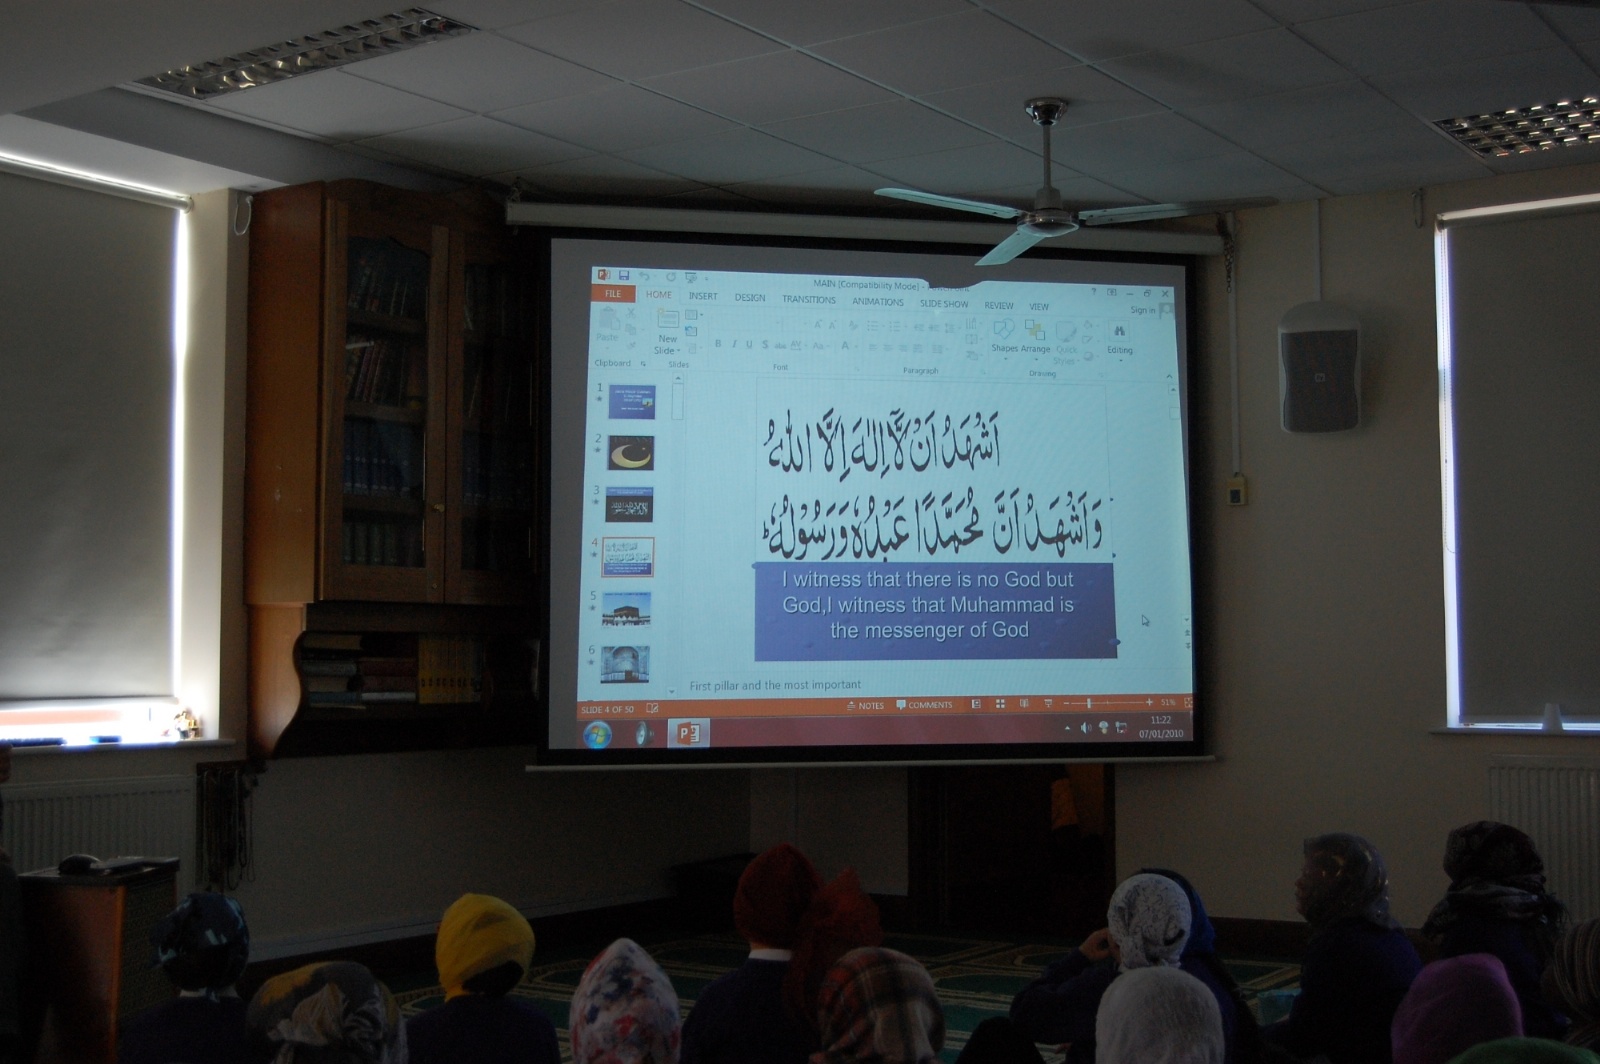 MAIN [Compatibility Mode] -
FILE HOME INSERT DESIGN TRANSITIONS ANIMATIONS SLIDE SHOW REVIEW VIEW
Sign in
Paste
New Slide
Shapes Arrange Quick Styles
Editing
Clipboard Slides Font Paragraph Drawing
1
2
3
4
5
6
اَشْهَدُ اَنْ لَّآ اِلٰهَ اِلَّا اللهُ
وَ اَشْهَدُ اَنَّ مُحَمَّدًا عَبْدُهٗ وَ رَسُوْلُهٗ
I witness that there is no God but
God,I witness that Muhammad is
the messenger of God
First pillar and the most important
SLIDE 4 OF 50 NOTES COMMENTS 51%
11:22
07/01/2010